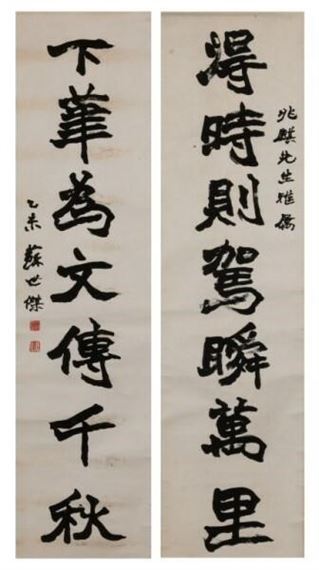 兆騏先生雅屬
得時則駕瞬萬里
下筆為文傳千秋
乙未 蘇世傑